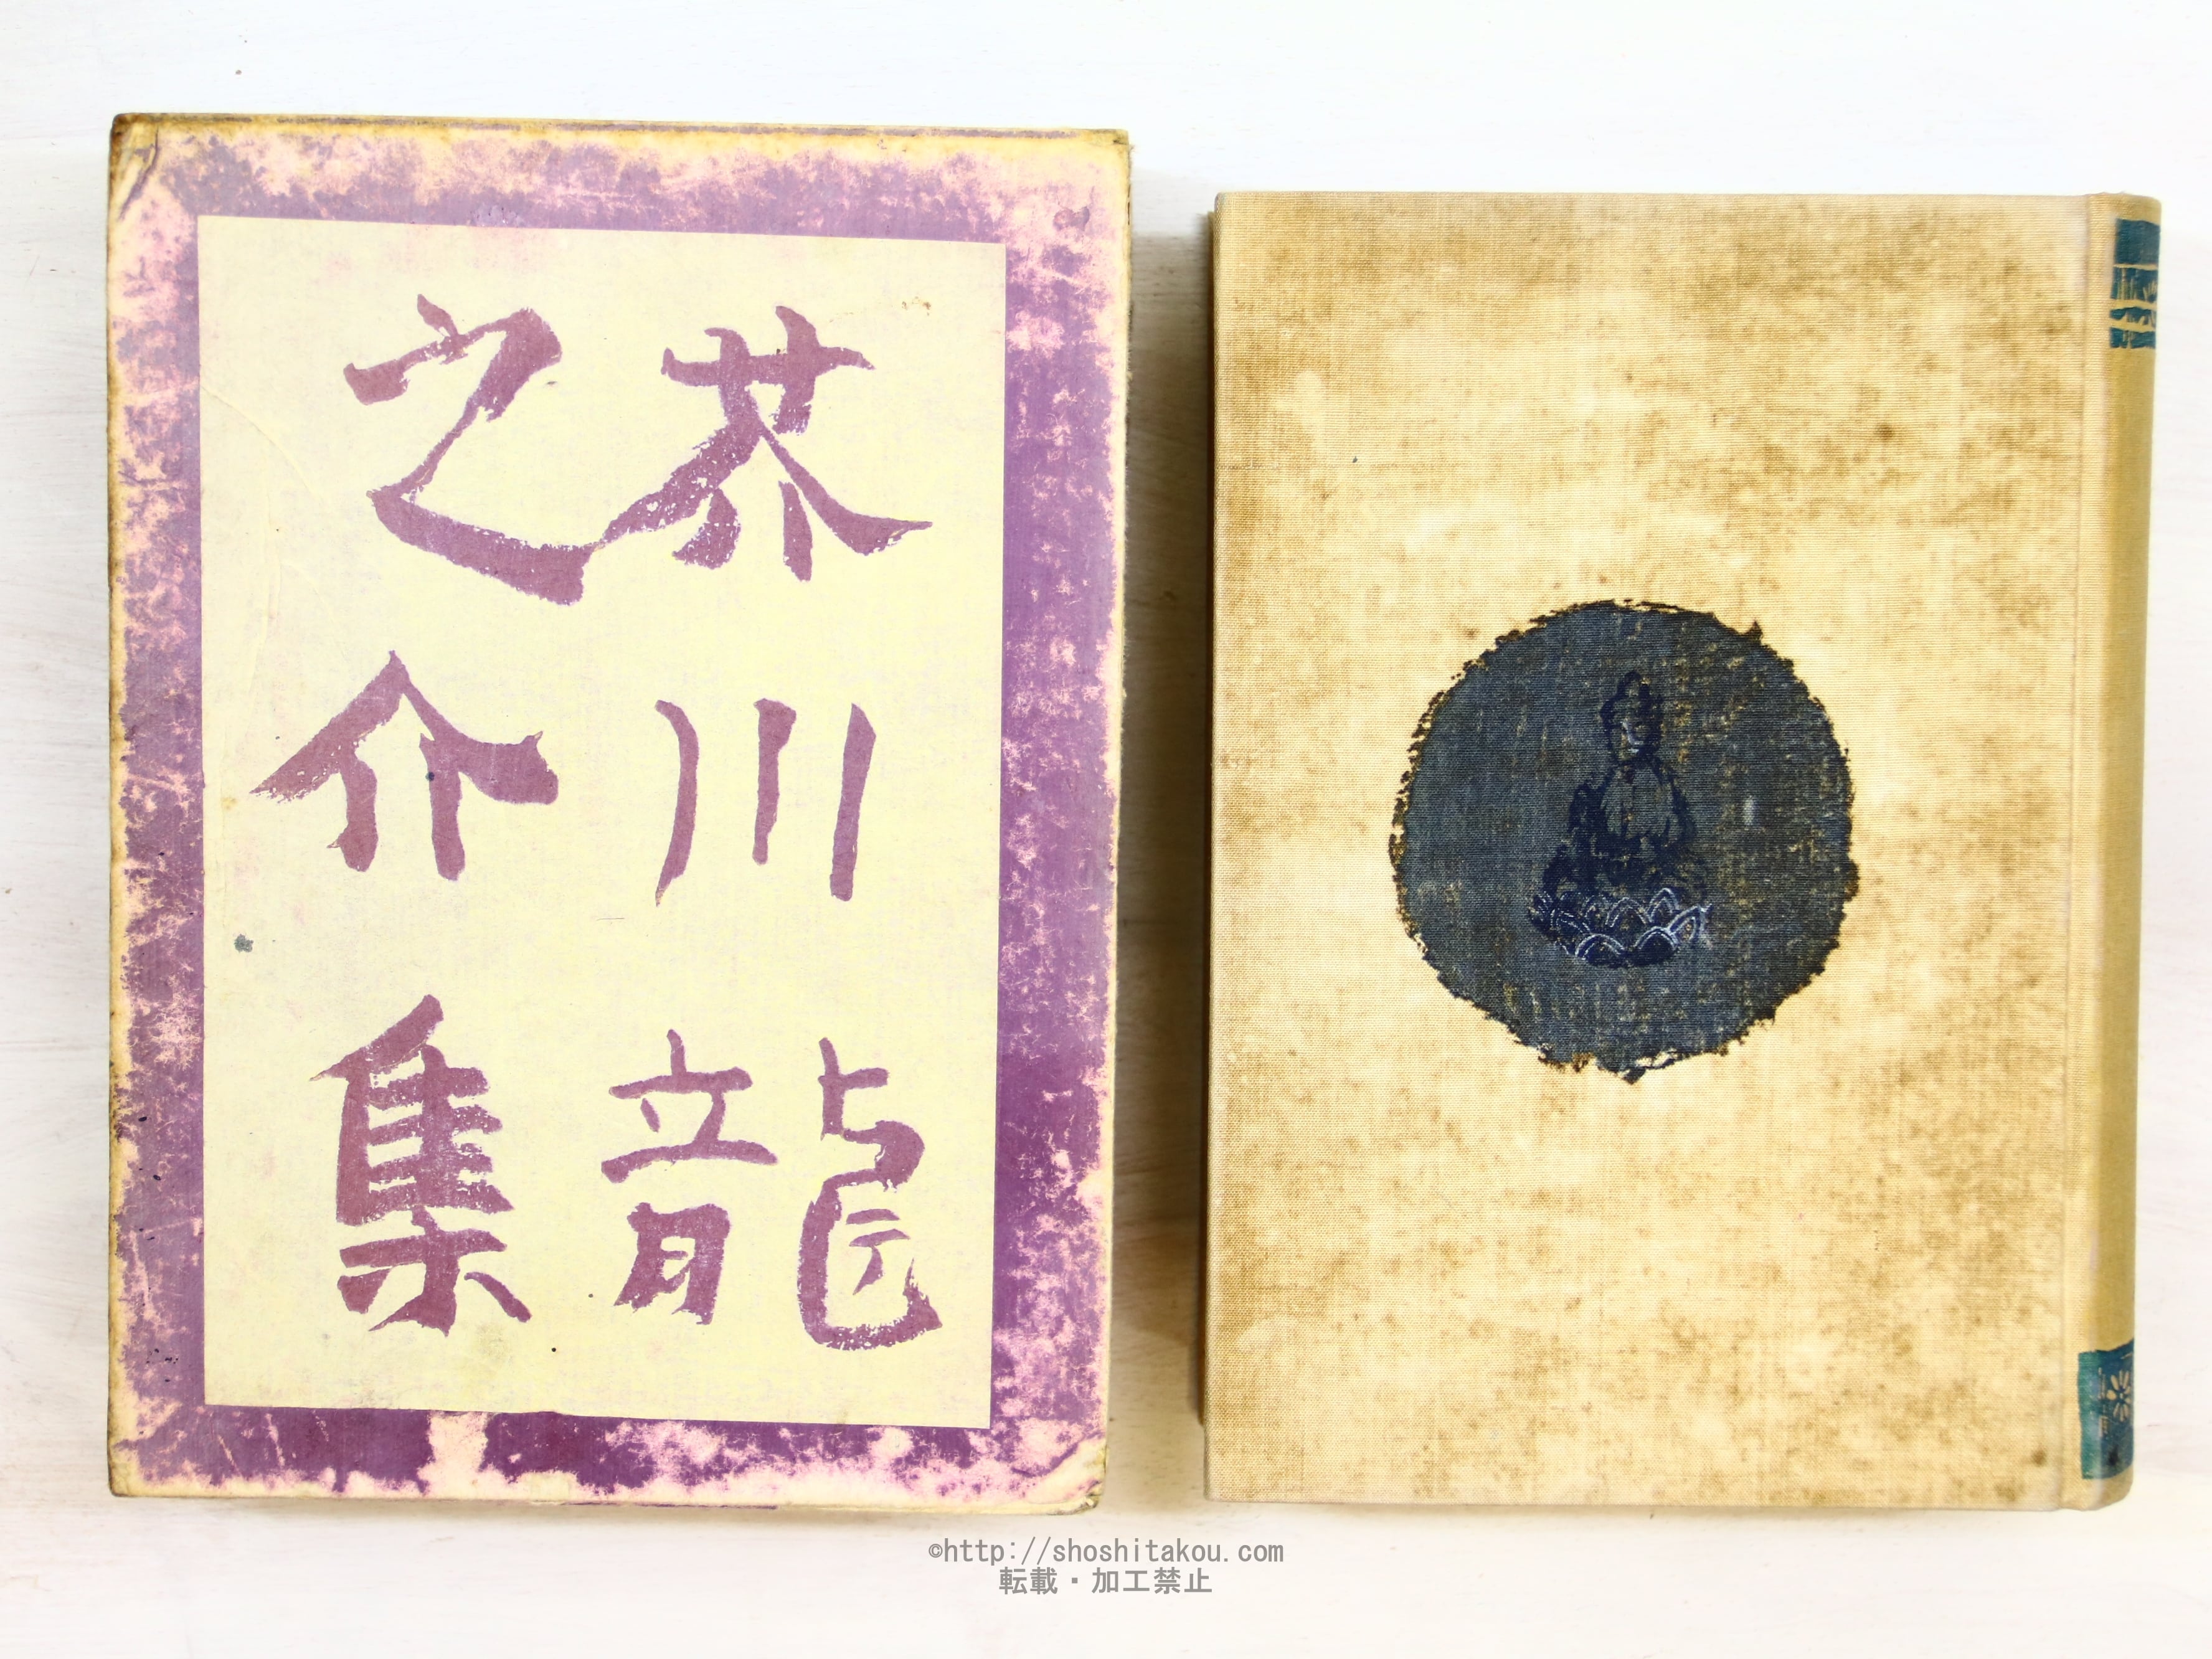 芥川龍
之介集
©http://shoshitakou.com
転載・加工禁止